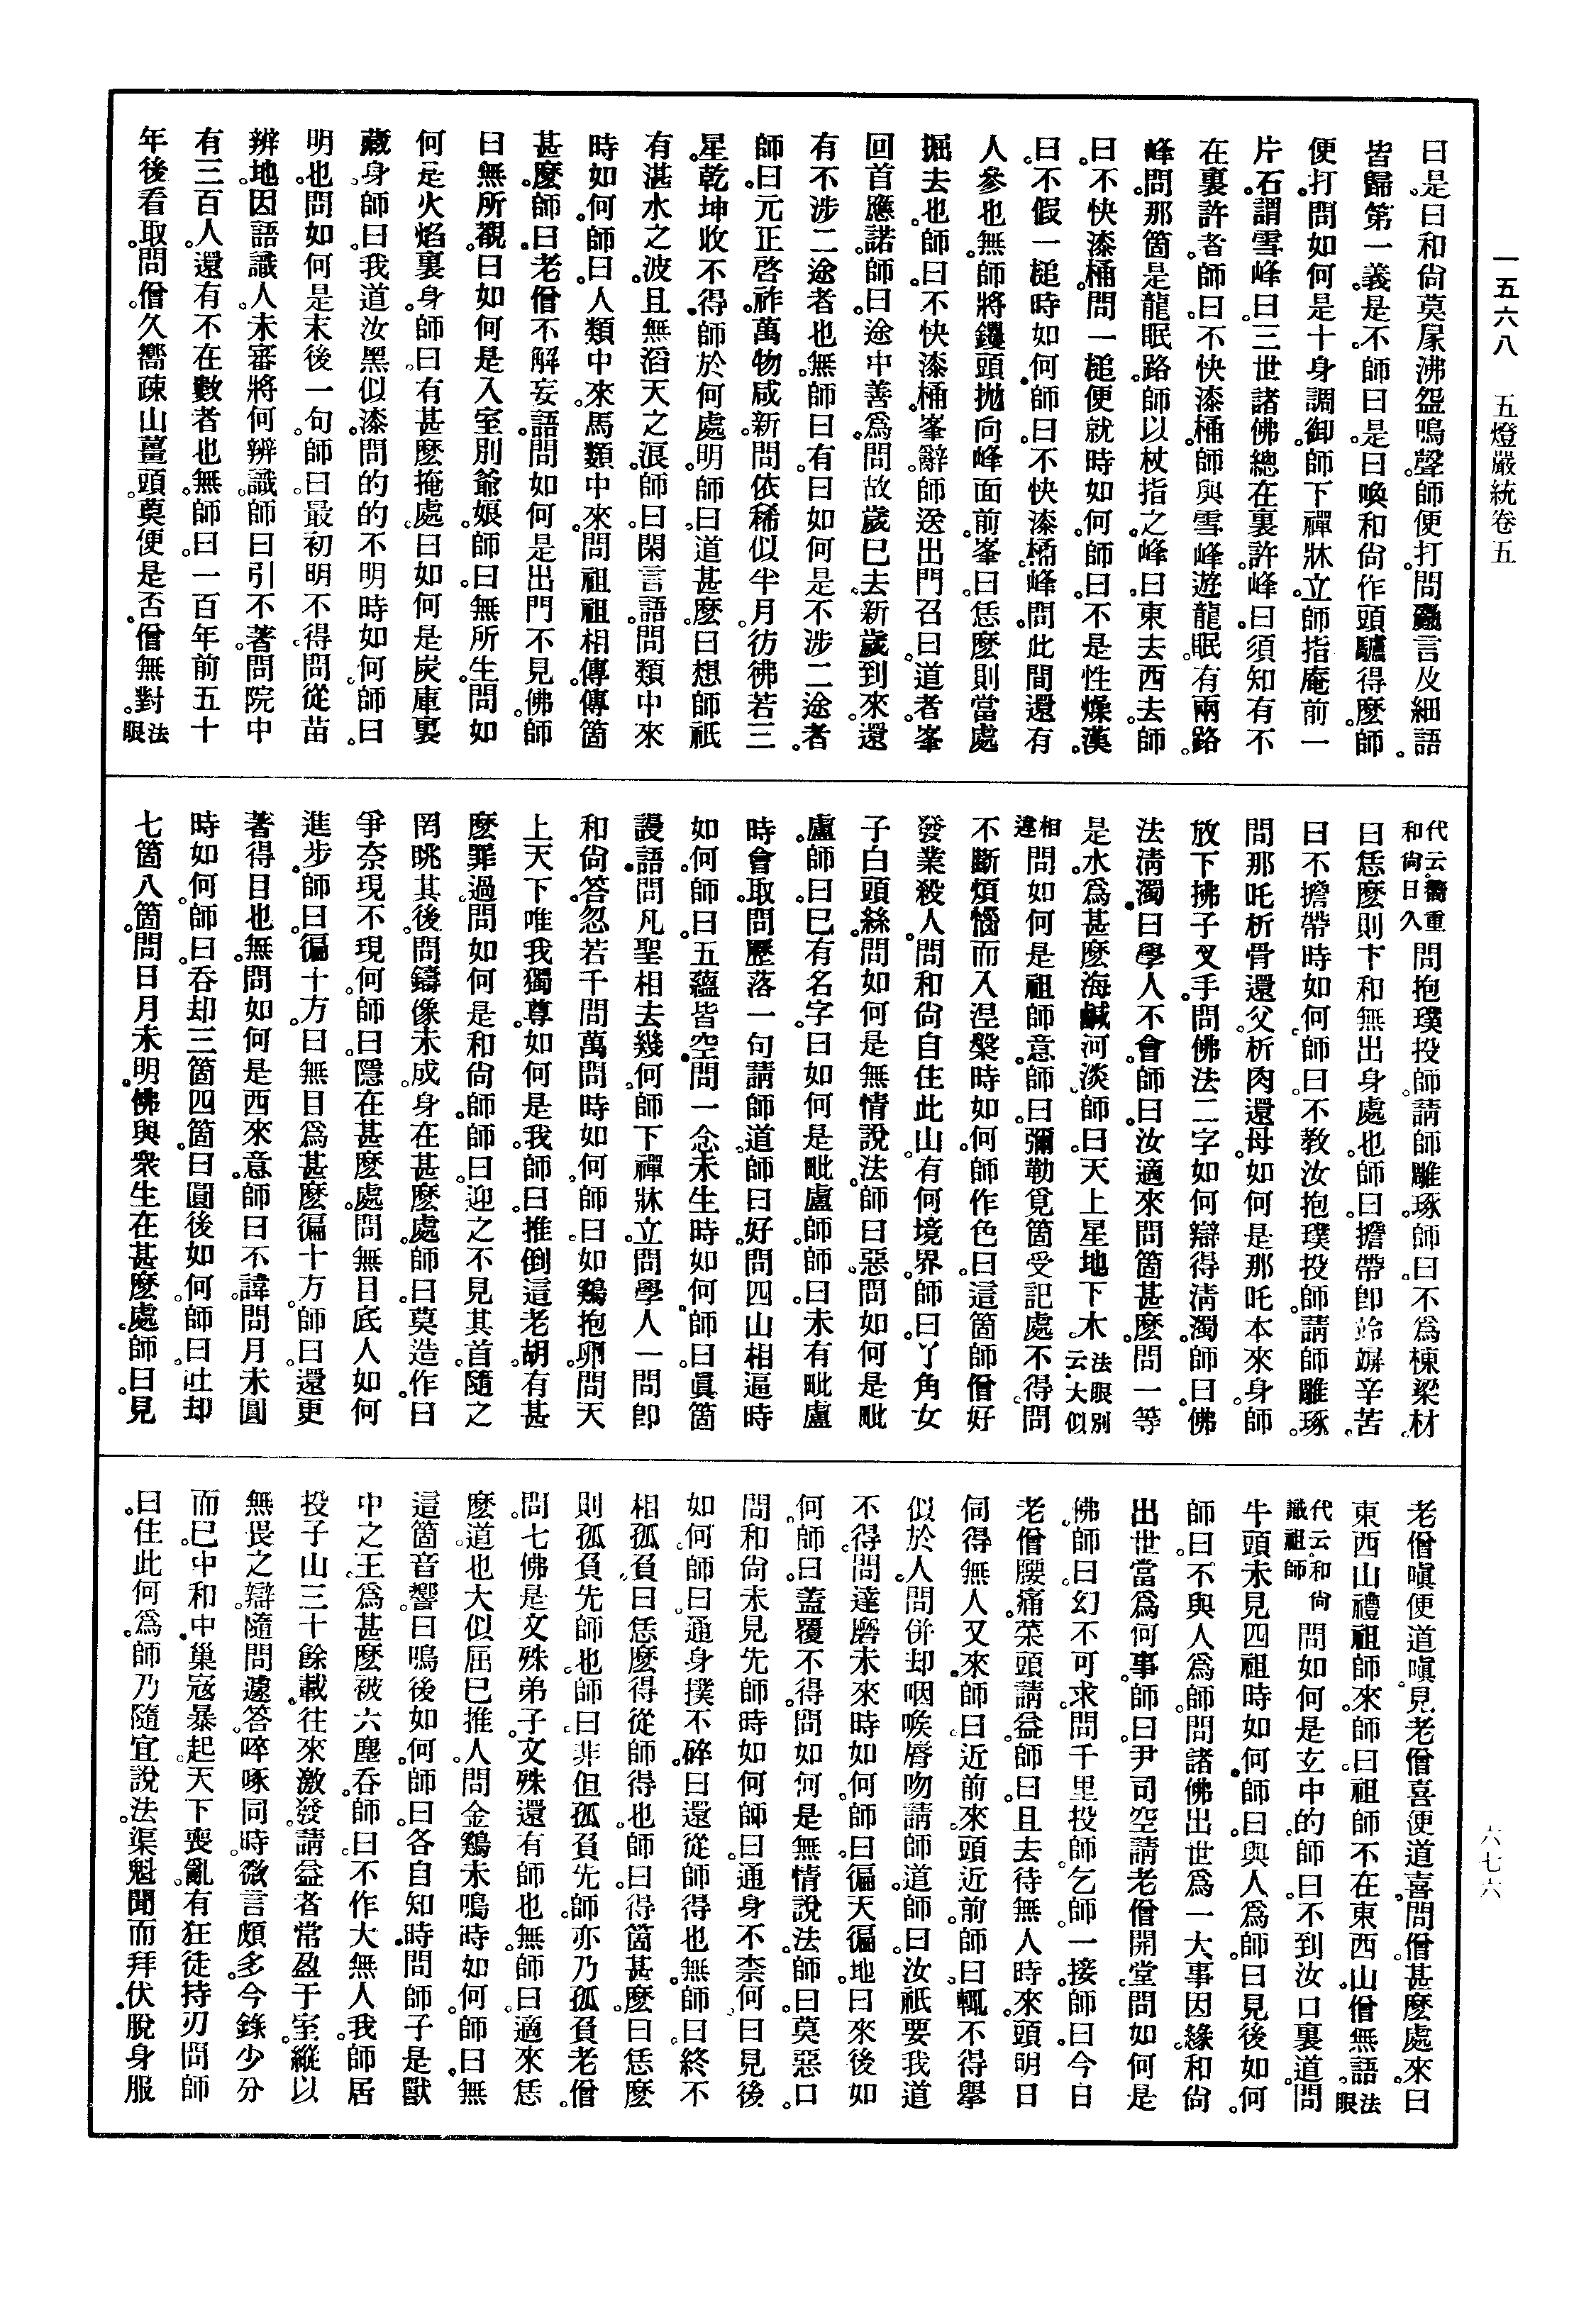 一五六八　五燈嚴統卷五
六七六
曰是。曰和尙莫㞘沸盌鳴聲。師便打。問麤言及細語。
皆歸第一義。是不。師曰是。曰喚和尙作頭驢得麽。師
便打。問如何是十身調御。師下禪牀立。師指庵前一
片石。謂雪峰曰。三世諸佛總在裏許。峰曰。須知有不
在裏許者。師曰。不快漆桶。師與雪峰遊龍眠。有兩路。
峰問。那箇是龍眠路。師以杖指之。峰曰。東去西去。師
曰。不快漆桶。問一槌便就時如何。師曰。不是性燥漢。
曰。不假一槌時如何。師曰。不快漆桶。峰問。此間還有
人參也無。師將钁頭抛向峰面前。峯曰。恁麽則當處
掘去也。師曰。不快漆桶。峯辭。師送出門召曰。道者。峯
回首應諾。師曰。途中善爲。問故歲已去。新歲到來。還
有不涉二途者也無。師曰有。曰如何是不涉二途者。
師曰。元正啓祚。萬物咸新。問依稀似半月。彷彿若三
星。乾坤收不得。師於何處明。師曰。道甚麽。曰想師祇
有湛水之波。且無滔天之浪。師曰。閑言語。問類中來
時如何。師曰。人類中來。馬類中來。問祖祖相傳。傳箇
甚麽。師曰。老僧不解妄語。問如何是出門不見佛。師
曰無所覩。曰如何是入室別爺娘。師曰。無所生。問如
何是火焰裏身。師曰。有甚麽掩處。曰如何是炭庫裏
藏身。師曰。我道汝黑似漆。問的的不明時如何。師曰。
明也。問如何是末後一句。師曰。最初明不得。問從苗
辨地。因語識人。未審將何辨識。師曰引不著。問院中
有三百人。還有不在數者也無。師曰。一百年前五十
年後看取。問僧。久嚮疎山薑頭。莫便是否。僧無對。法眼
代云。嚮重和尙日久問抱璞投師。請師雕琢。師曰。不爲棟梁材。
曰恁麽則卞和無出身處也。師曰。擔帶卽竛竮辛苦。
曰不擔帶時如何。師曰。不教汝抱璞投師。請師雕琢。
問那吒析骨還父。析肉還母。如何是那吒本來身。師
放下拂子叉手。問佛法二字如何辯得淸濁。師曰。佛
法淸濁。曰學人不會。師曰。汝適來問箇甚麽。問一等
是水。爲甚麽海鹹河淡。師曰。天上星地下木。法眼別云。大似
相違問如何是祖師意。師曰。彌勒覓箇受記處不得。問
不斷煩惱而入涅槃時如何。師作色曰。這箇師僧好
發業殺人。問和尙自住此山。有何境界。師曰。丫角女
子白頭絲。問如何是無情說法。師曰惡。問如何是毗
盧。師曰。已有名字。曰如何是毗盧師。師曰。未有毗盧
時會取。問歷落一句請師道。師曰好。問四山相逼時
如何。師曰。五蘊皆空。問一念未生時如何。師曰。眞箇
謾語。問凡聖相去幾何。師下禪牀立。問學人一問卽
和尙答。忽若千問萬問時如何。師曰。如鷄抱卵。問天
上天下唯我獨尊。如何是我。師曰。推倒這老胡。有甚
麽罪過。問如何是和尙師。師曰。迎之不見其首。隨之
罔眺其後。問鑄像未成。身在甚麽處。師曰。莫造作。曰
爭奈現不現何。師曰。隱在甚麽處。問無目底人如何
進步。師曰。徧十方。曰無目爲甚麽徧十方。師曰。還更
著得目也無。問如何是西來意。師曰不諱。問月未圓
時如何。師曰。吞却三箇四箇。曰圓後如何。師曰。吐却
七箇八箇。問日月未明。佛與衆生在甚麽處。師曰。見
老僧嗔便道嗔。見老僧喜便道喜。問僧。甚麽處來。曰
東西山禮祖師來。師曰。祖師不在東西山。僧無語。法眼
代云。和尙識祖師問如何是玄中的。師曰。不到汝口裏道。問
牛頭未見四祖時如何。師曰。與人爲師。曰見後如何。
師曰。不與人爲師。問諸佛出世爲一大事因緣。和尙
出世當爲何事。師曰。尹司空請老僧開堂。問如何是
佛。師曰。幻不可求。問千里投師。乞師一接。師曰。今日
老僧腰痛。菜頭請益。師曰。且去待無人時來。頭明日
伺得無人又來。師曰。近前來。頭近前。師曰。輒不得擧
似於人。問併却咽喉脣吻請師道。師曰。汝祇要我道
不得。問達磨未來時如何。師曰。徧天徧地。曰來後如
何。師曰。蓋覆不得。問如何是無情說法。師曰。莫惡口。
問和尙未見先師時如何。師曰。通身不柰何。曰見後
如何。師曰。通身撲不碎。曰還從師得也無。師曰。終不
相孤負。曰恁麽得從師得也。師曰。得箇甚麽。曰恁麽
則孤負先師也。師曰。非但孤負先師。亦乃孤負老僧。
問七佛是文殊弟子。文殊還有師也無。師曰。適來恁
麽道也。大似屈已推人。問金鷄未鳴時如何。師曰。無
這箇音響。曰鳴後如何。師曰。各自知時。問師子是獸
中之王。爲甚麽被六塵吞。師曰。不作大無人我。師居
投子山三十餘載。往來激發。請益者常盈于室。縱以
無畏之辯。隨問遽答。啐啄同時。微言頗多。今錄少分
而已。中和中。巢寇暴起。天下喪亂。有狂徒持刃問師
曰。住此何爲。師乃隨宜說法。渠魁聞而拜伏。脫身服